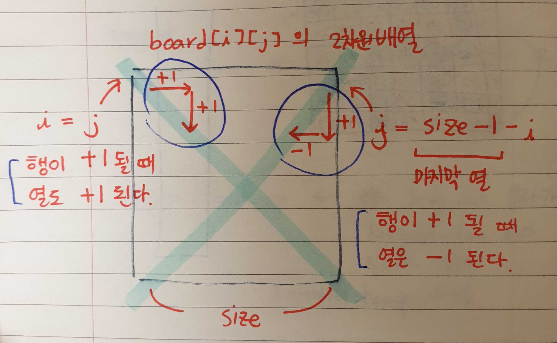 board[i][j] 의 2차원배열
+1
+1
i = j
행이 +1 될 때
열도 +1 된다.
+1
-1
j = size -1 - i
마지막 열
행이 +1 될 때
열은 -1 된다.
size